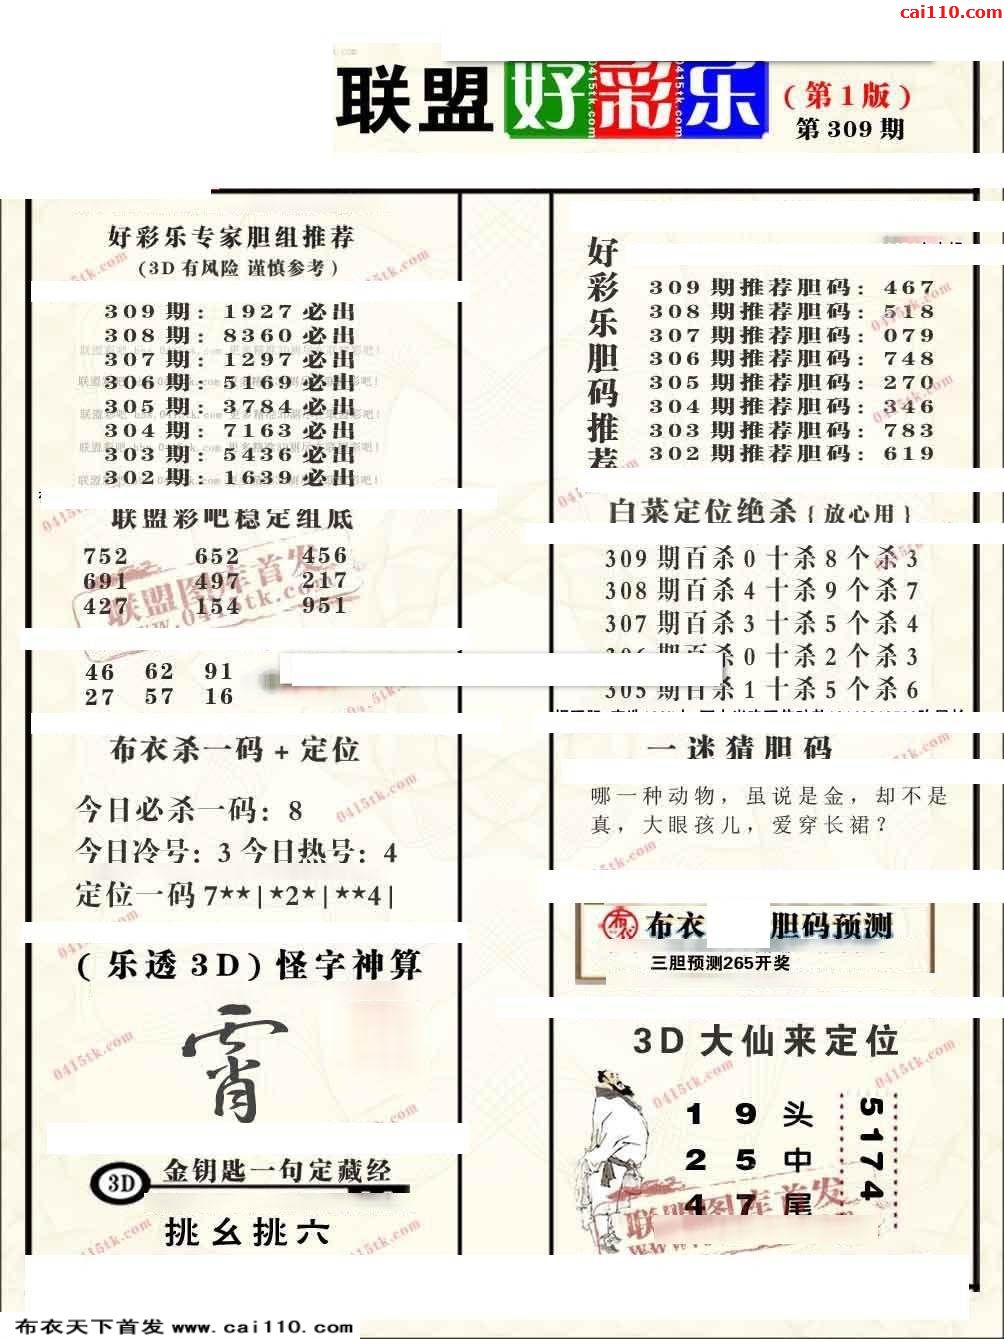 cai110.com
联盟好彩乐
(第1版)
第309期
好彩乐专家胆组推荐
(3D有风险 谨慎参考)
309期: 1927必出
308期: 8360必出
307期: 1297必出
306期: 5169必出
305期: 3784必出
304期: 7163必出
303期: 5436必出
302期: 1639必出
联盟彩吧稳定组底
752 652 456
691 497 217
427 154 951
46 62 91
27 57 16
布衣杀一码+定位
今日必杀一码: 8
今日冷号: 3 今日热号: 4
定位一码7**|*2*|**4|
(乐透3D)怪字神算
霄
3D 金钥匙一句定藏经
挑幺挑六
好彩乐胆码推荐
309期推荐胆码: 467
308期推荐胆码: 518
307期推荐胆码: 079
306期推荐胆码: 748
305期推荐胆码: 270
304期推荐胆码: 346
303期推荐胆码: 783
302期推荐胆码: 619
白菜定位绝杀{放心用}
309期百杀0十杀8个杀3
308期百杀4十杀9个杀7
307期百杀3十杀5个杀4
306期百杀0十杀2个杀3
305期百杀1十杀5个杀6
一迷猜胆码
哪一种动物，虽说是金，却不是
真，大眼孩儿，爱穿长裙？
布衣 胆码预测
三胆预测265开奖
3D大仙来定位
1 9 头
2 5 中
4 7 尾
5174
联盟图库首发
0415tk.com
布衣天下首发 www.cai110.com